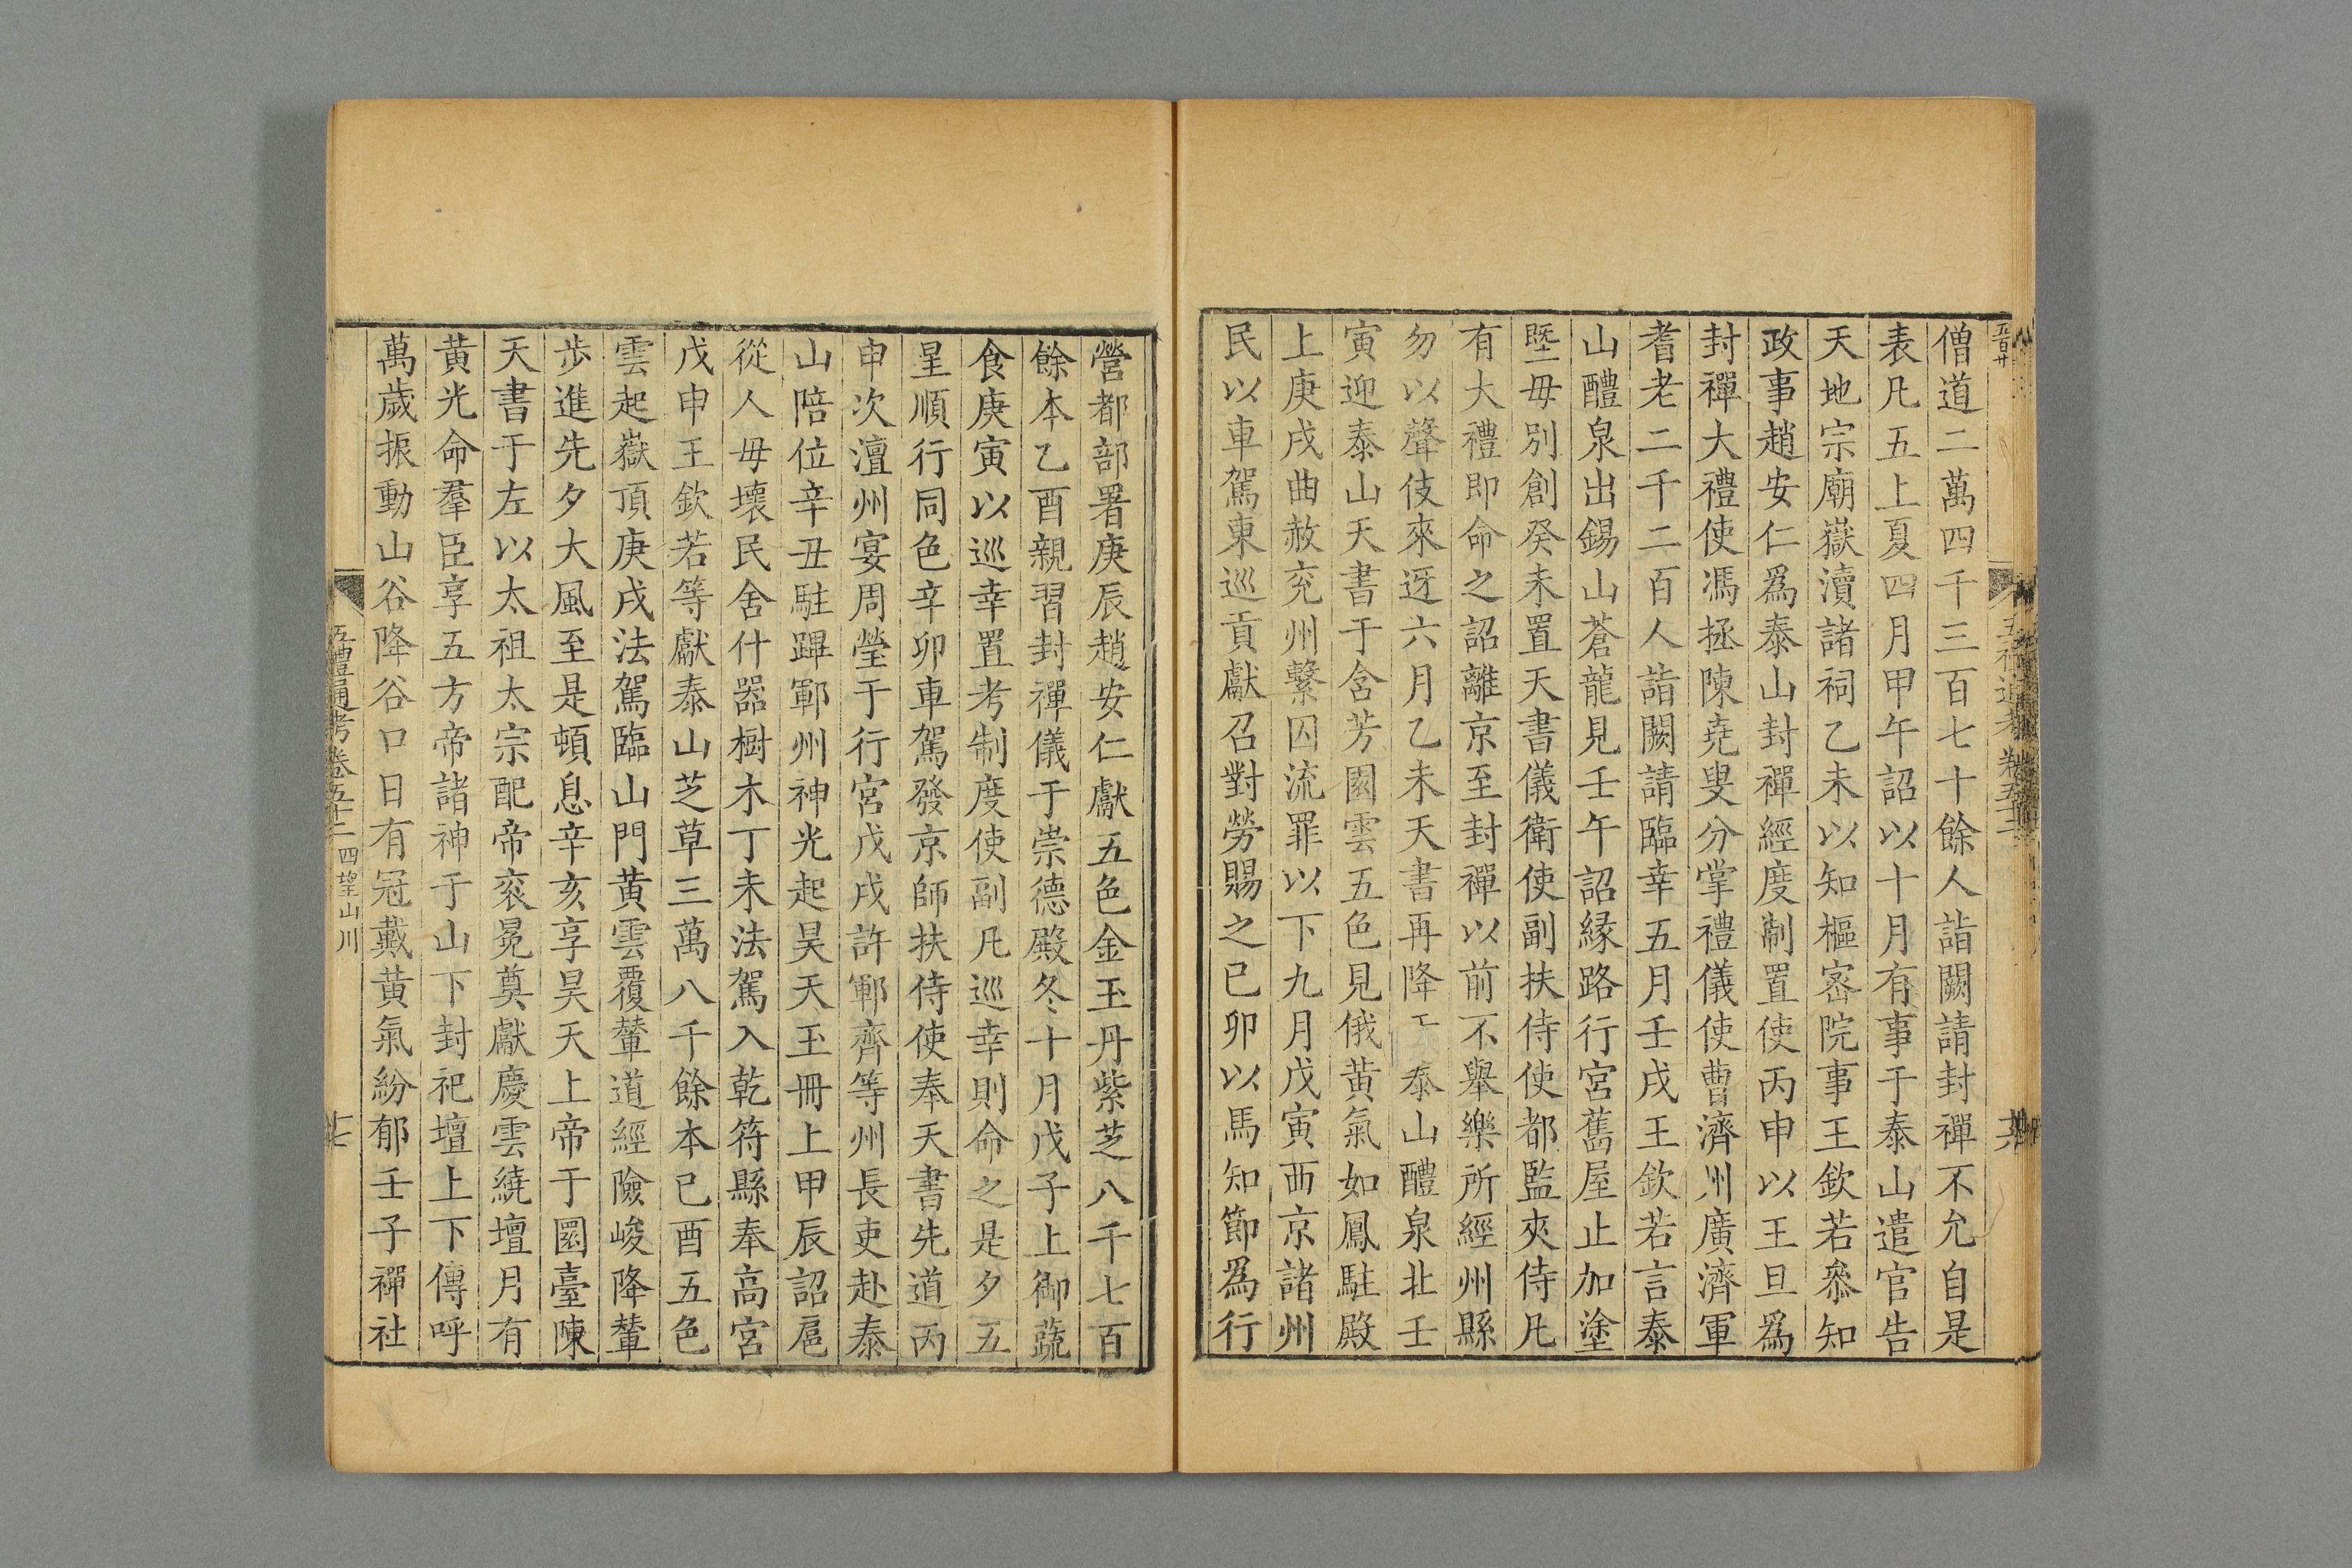 僧道二萬四千三百七十餘人詣闕請封禪不允自是
表凡五上夏四月甲午詔以十月有事于泰山遣官告
天地宗廟嶽瀆諸祠乙未以知樞密院事王欽若叅知
政事趙安仁爲泰山封禪經度制置使丙申以王旦爲
封禪大禮使馮拯陳堯叟分掌禮儀使曹濟州廣濟軍
耆老二千二百人詣闕請臨幸五月壬戌王欽若言泰
山醴泉出錫山蒼龍見壬午詔緣路行宮舊屋止加塗
塈毋別創癸未置天書儀衛使副扶侍使都監夾侍凡
有大禮即命之詔離京至封禪以前不舉樂所經州縣
勿以聲伎來迓六月乙未天書再降 泰山醴泉北壬
寅迎泰山天書于含芳園雲五色見俄黃氣如鳳駐殿
上庚戌曲赦兖州繫囚流罪以下九月戊寅西京諸州
民以車駕東巡貢獻召對勞賜之已卯以馬知節爲行
營都部署庚辰趙安仁獻五色金玉丹紫芝八千七百
餘本乙酉親習封禪儀于崇德殿冬十月戊子上御蔬
食庚寅以巡幸置考制度使副凡巡幸則命之是夕五
星順行同色辛卯車駕發京師扶侍使奉天書先道丙
申次澶州宴周瑩于行宮戊戌許鄆齊等州長吏赴泰
山陪位辛丑駐蹕鄆州神光起昊天玉冊上甲辰詔扈
從人毋壞民舍什器樹木丁未法駕入乾符縣奉高宮
戊申王欽若等獻泰山芝草三萬八千餘本已酉五色
雲起嶽頂庚戌法駕臨山門黃雲覆輦道經險峻降輦
步進先夕大風至是頓息辛亥享昊天上帝于圜臺陳
天書于左以太祖太宗配帝衮冕奠獻慶雲繞壇月有
黃光命羣臣享五方帝諸神于山下封祀壇上下傳呼
萬歲振動山谷降谷口日有冠戴黃氣紛郁壬子禪社
五禮通考卷五十二 四望山川